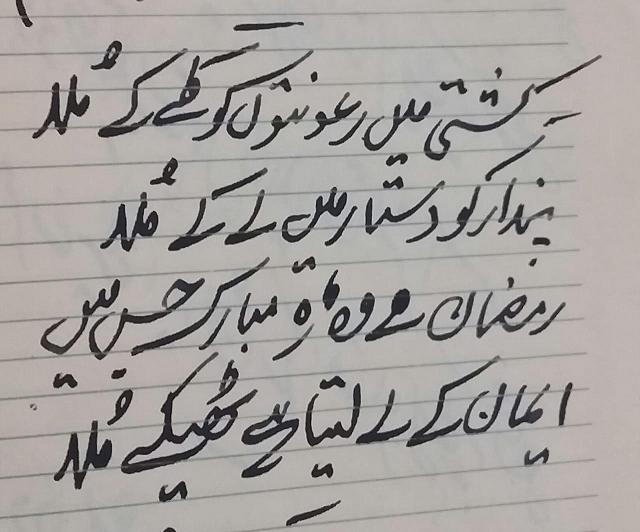 کشتی میں رعونتوں کو کھے کے مُلّا
پندار کو دستار میں لے کے مُلّا
رمضان ہے وہ ماہِ مبارک جس میں
ایمان کے لے لیتا ہے ٹھیکے مُلّا